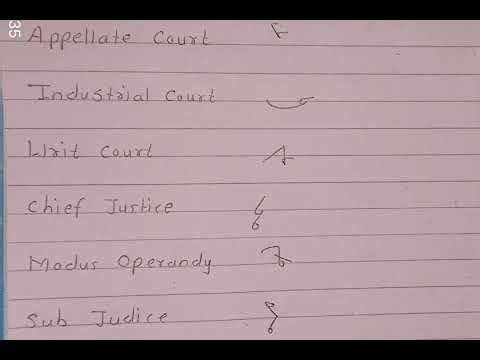 35
Appellate Court
Industrial Court
Writ Court
Chief Justice
Modus Operandy
Sub Judice